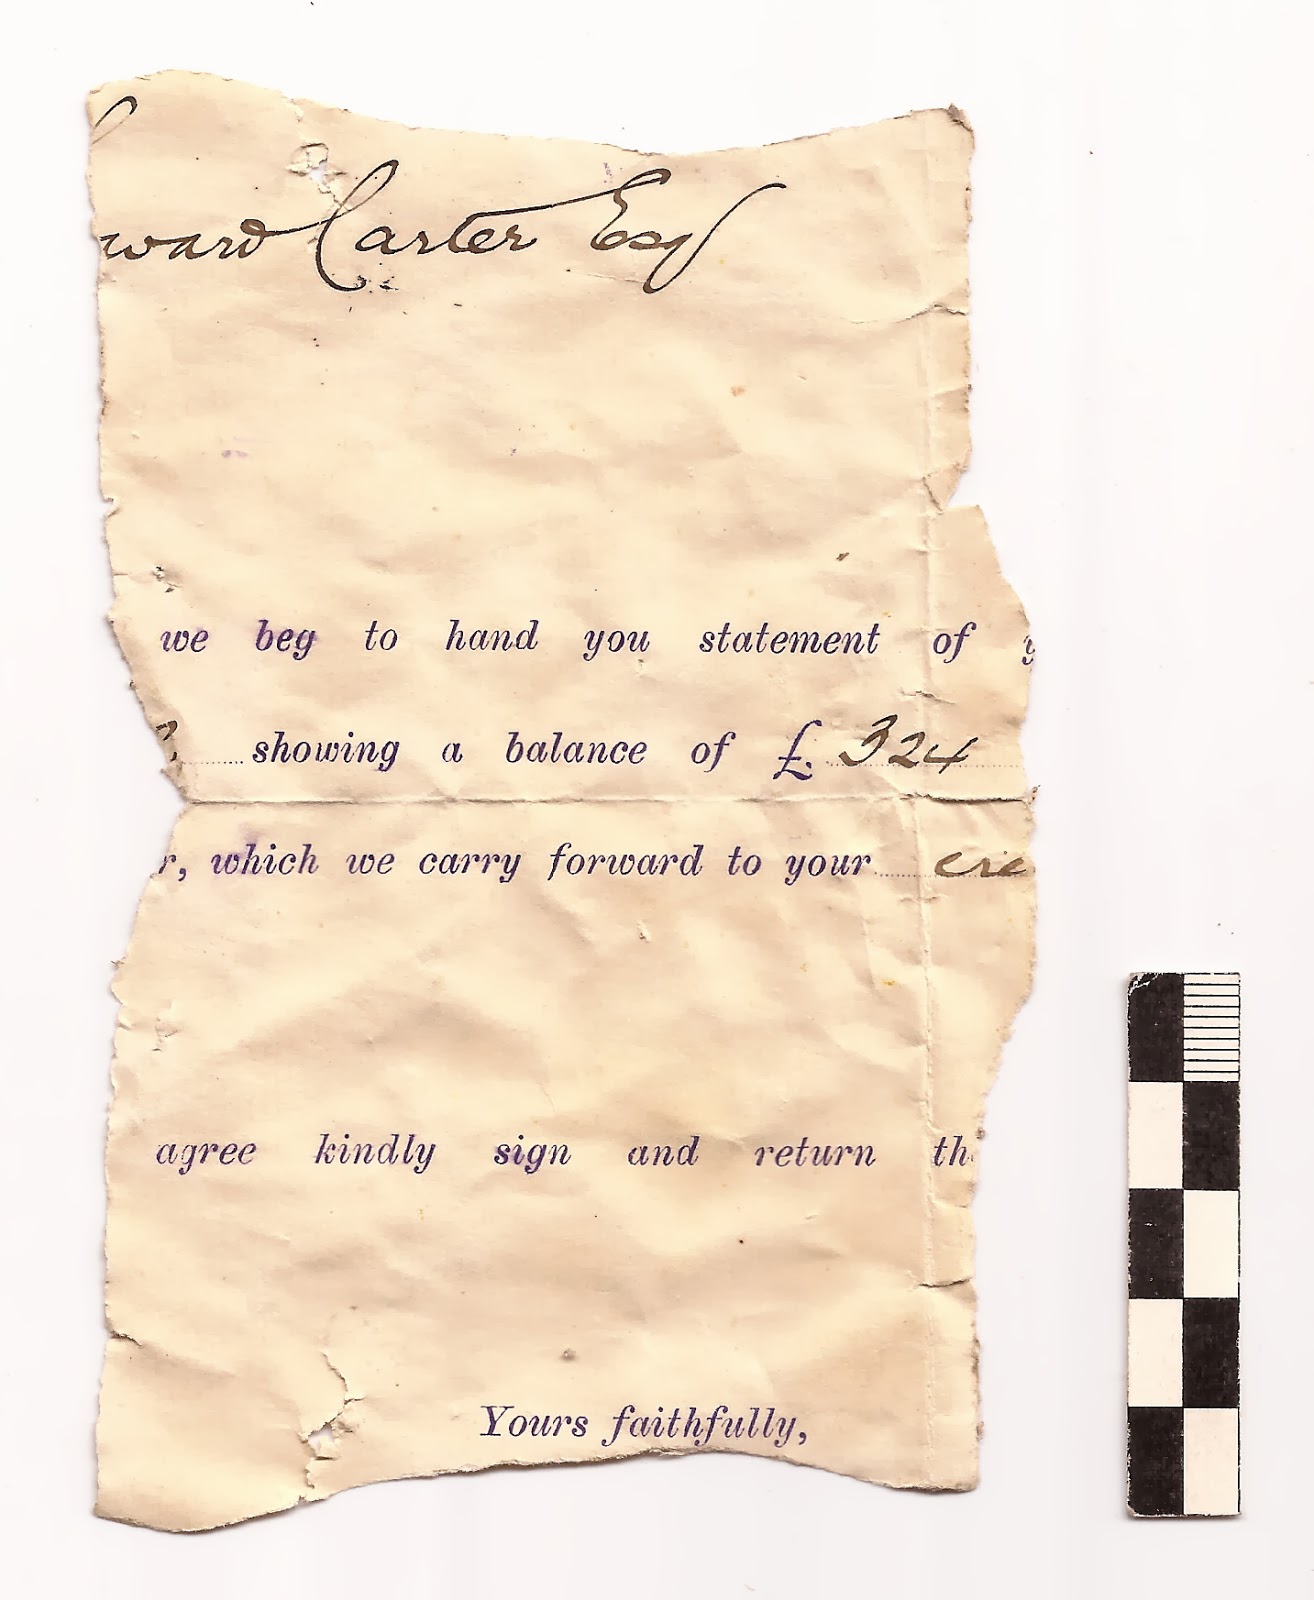 ward Carter Esq
we beg to hand you statement of y
showing a balance of £. 324
r, which we carry forward to your cre
agree kindly sign and return th
Yours faithfully,